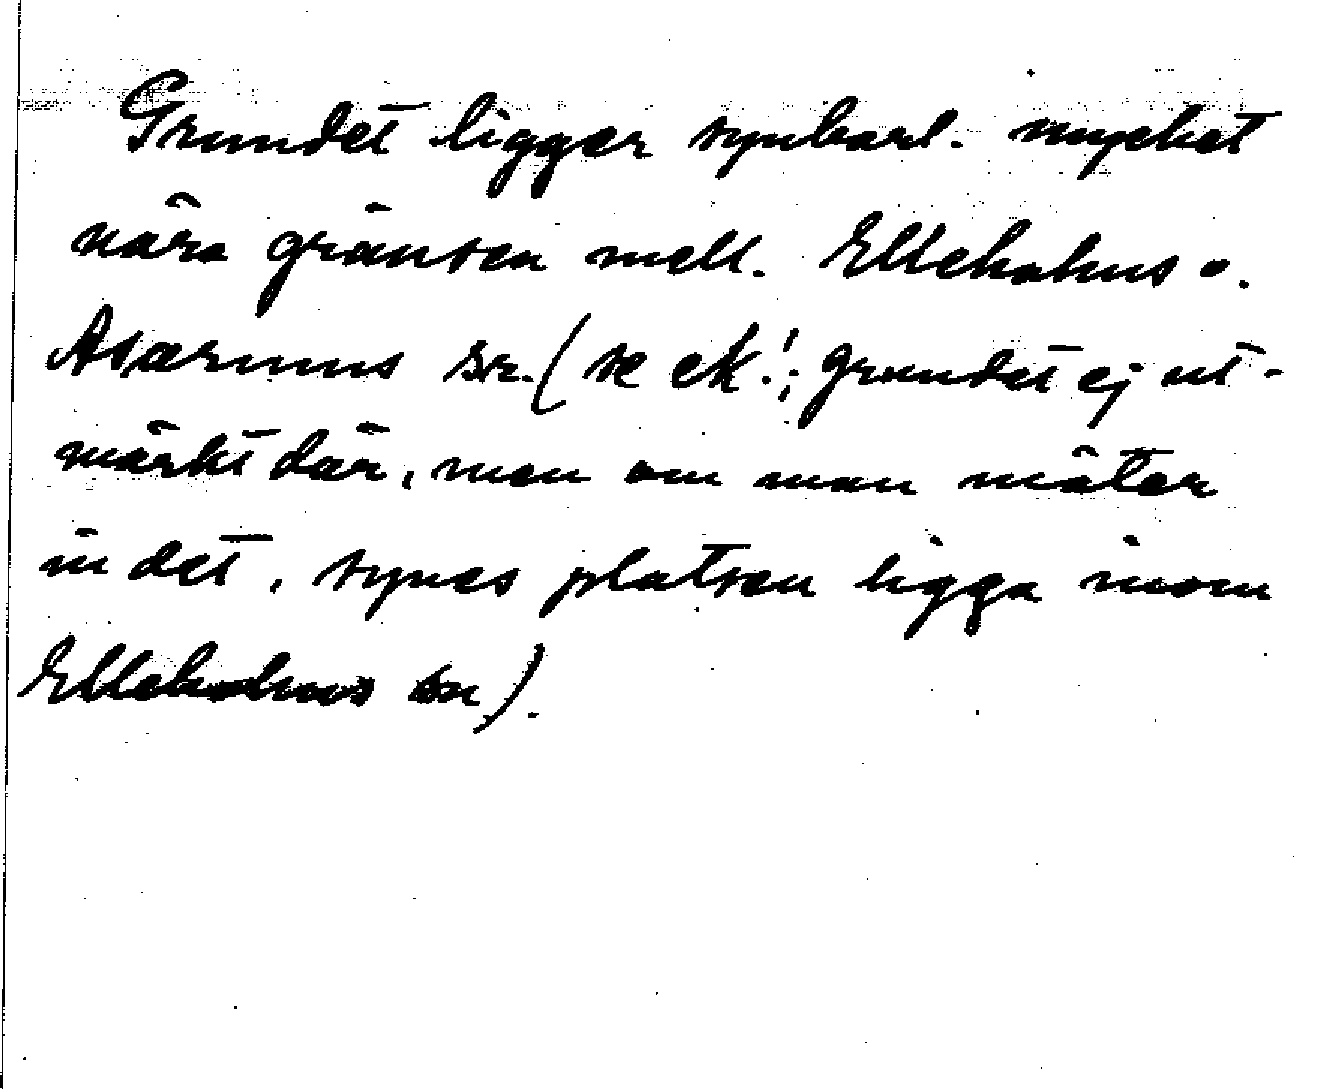 Grundet ligger synbarl. mycket
nära gränsen mell. Ellehohus o.
Asarums sr. (se ek!; grundet ej ut-
märkt där, men om man mäter
in det, synes platsen ligga inom
Ellehohus sn).